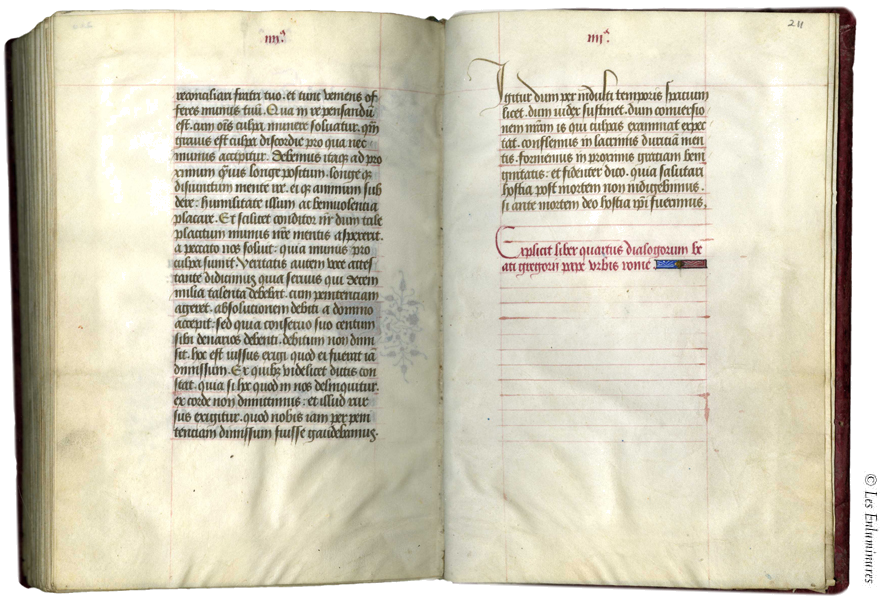 iiii.a
reconciliari fratri tuo. et tunc veniens of
feres munus tuū. Qua in re pensandū
est. cum oīs culpa munere soluatur. qm̄
grauis est culpa discordie pro qua nec
munus accipitur. Debemus itaqꝫ ad pro
ximum quis longe positum. longe qꝫ
disiunctum mente ire. ei qꝫ animum sub
dere: humilitate illum ac beniuolentia
placare. Et scilicet conditor nr̄ dum tale
placitum munus nr̄e mentis aspexerit.
a peccato nos soluit: quia munus pro
culpa sumit. Veritatis autem voce attes
tante didicimus quia seruus qui decem
milia talenta debebat. cum penitentiam
ageret. absolutionem debiti a domino
accepit. sed quia conseruo suo centum
sibi denarios debenti. debitum non dimi
sit. hoc est iussus exigi quod ei fuerat iā
dimissum. Ex quibꝫ videlicet dictis con
stat. quia si hoc quod in nos delinquitur.
ex corde non dimittimus: et illud rur
sus exigitur. quod nobis iam per peni
tentiam dimissum fuisse gaudebamus.
iiii.a
211
Igitur dum per indulti temporis spacium
licet. dum iudex sustinet. dum conuersio
nem nr̄am is qui culpas examinat expec
tat. conflemus in lacrimis duriciā men
tis. formemus in proximis graciam beni
gnitatis: et fidenter dico. quia salutari
hostia post mortem non indigebimus.
si ante mortem deo hostia ip̄i fuerimus.
Explicit liber quartus dialogorum be
ati gregorii pape vrbis rome
© Les Enluminures